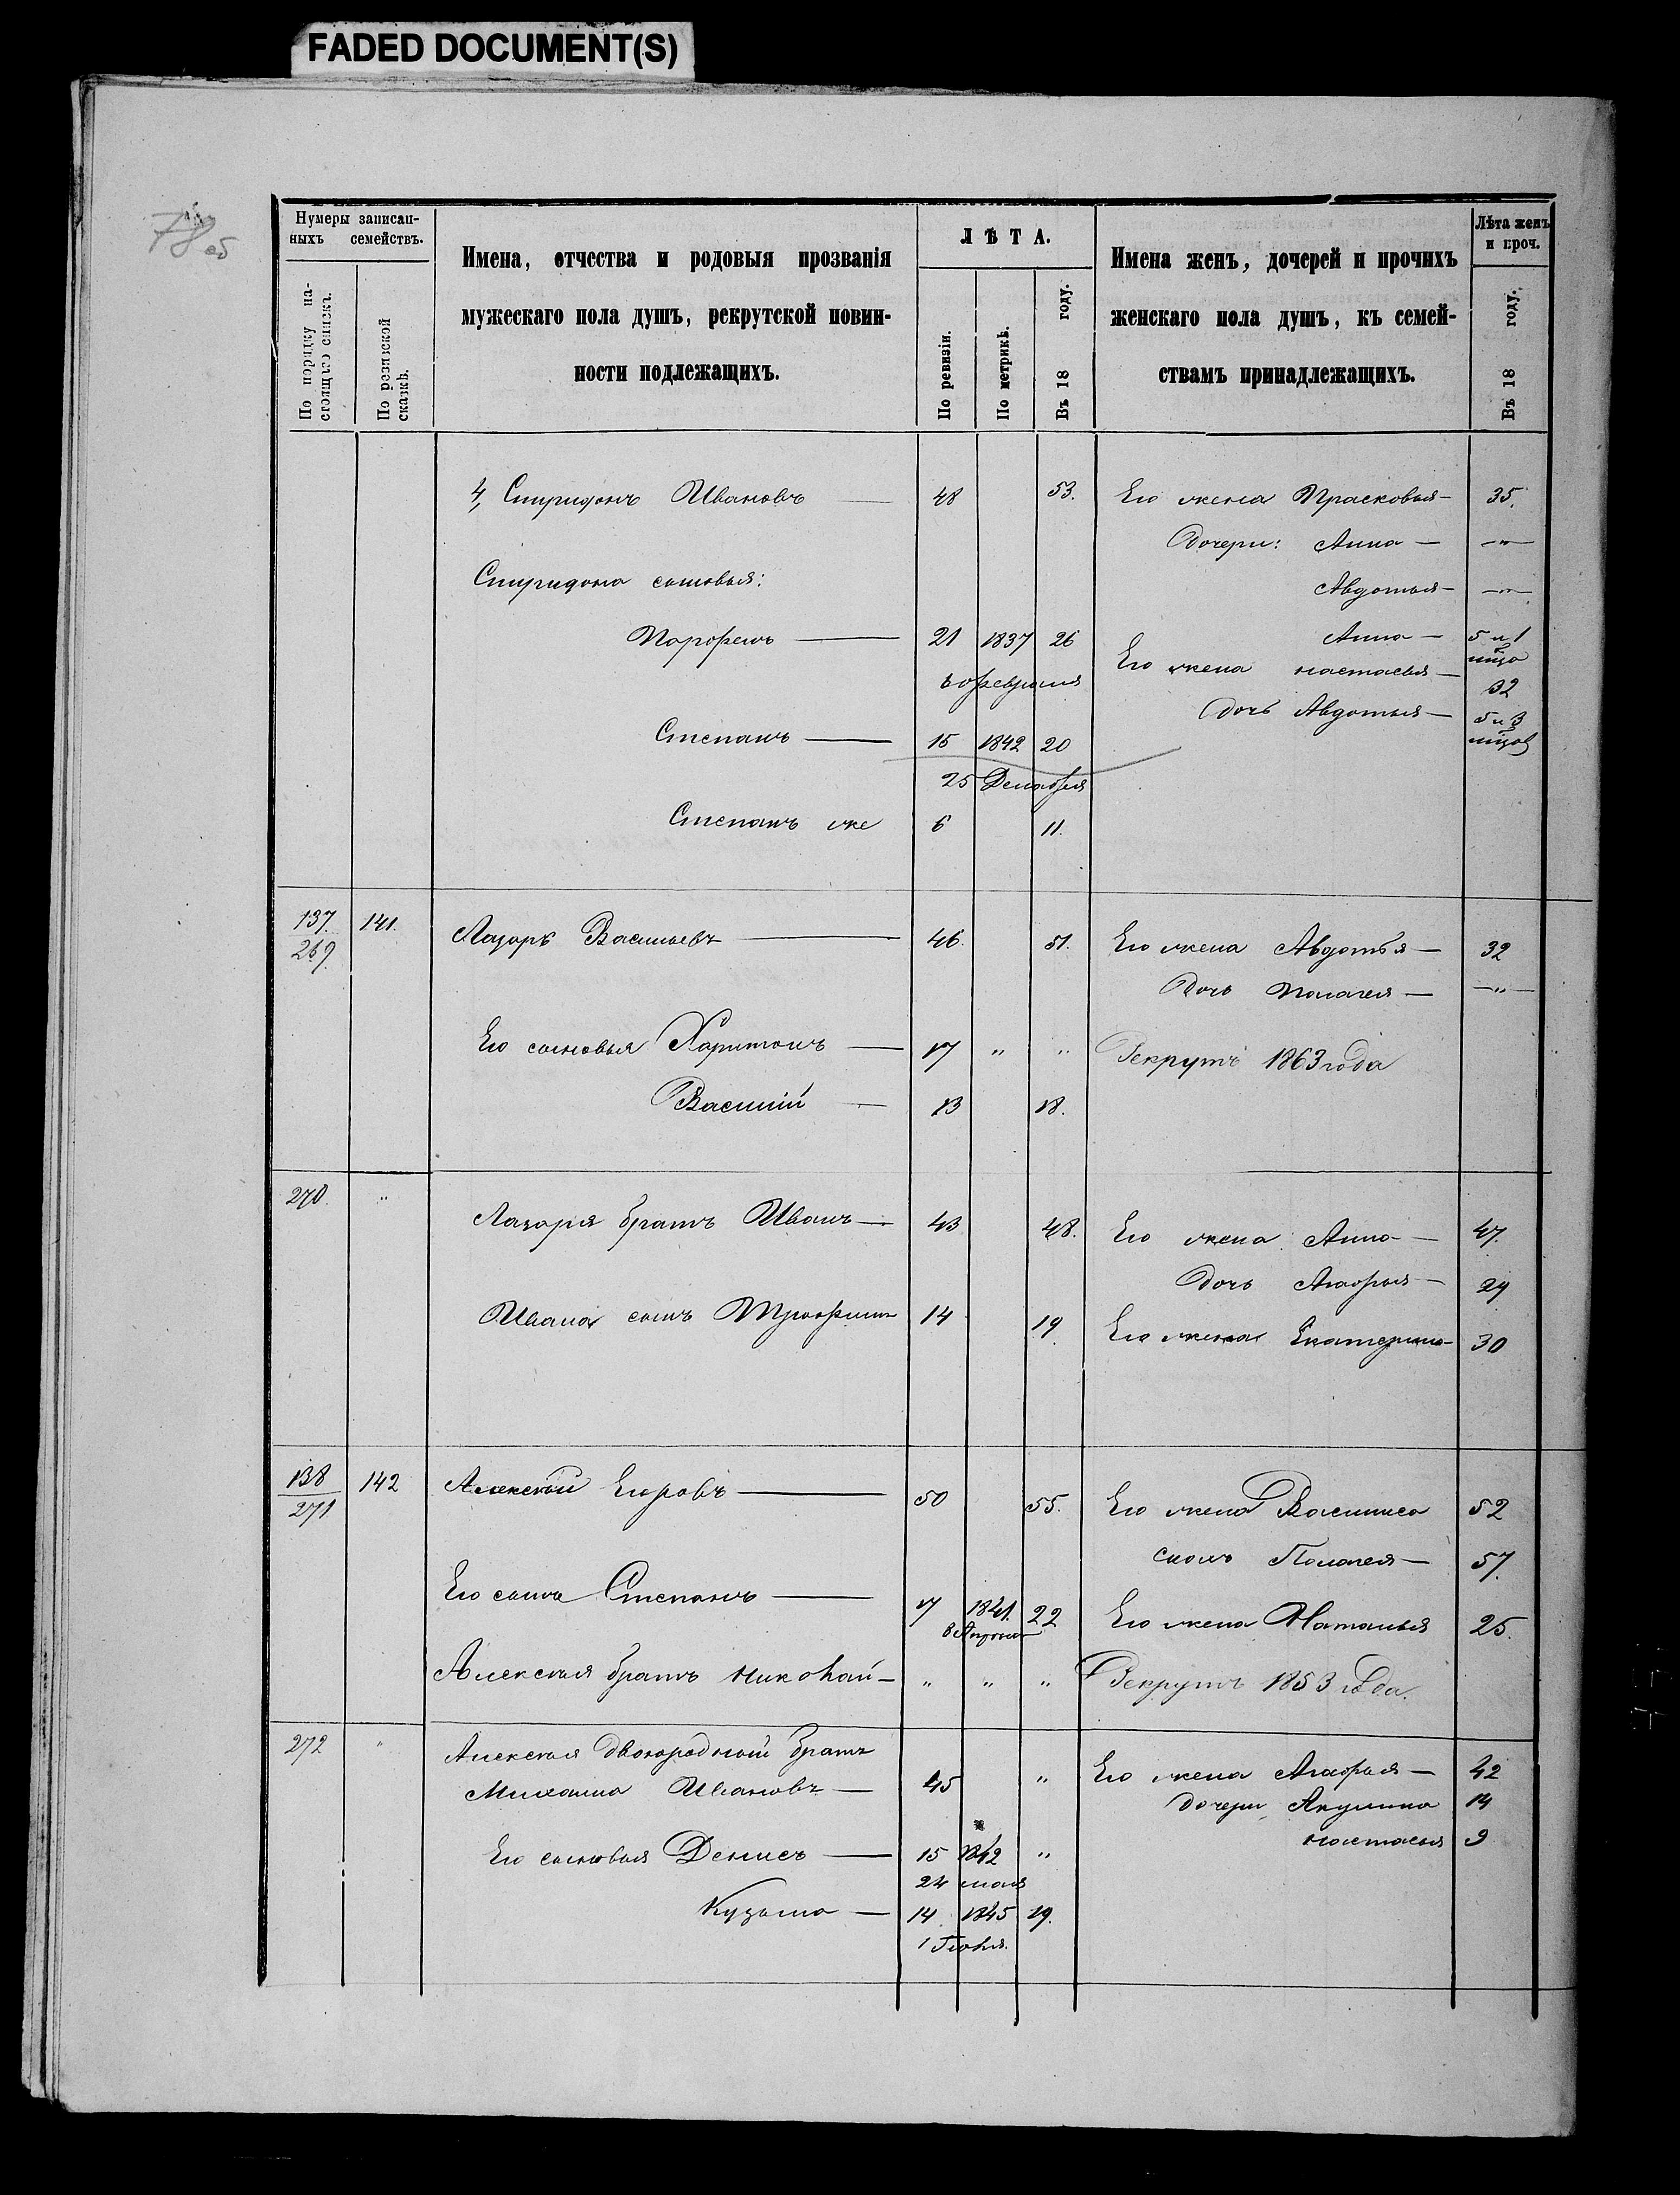 FADED DOCUMENT(S)
78 об
Нумеры записан-
ныхъ семействъ.
По порядку на-
стоящаго списка.
По ревизской
сказкѣ.
Имена, отчества и родовыя прозванія
мужескаго пола душъ, рекрутской повин-
ности подлежащихъ.
ЛѢТА.
По ревизіи.
По метрикѣ.
Въ 18 году.
Имена женъ, дочерей и прочихъ
женскаго пола душъ, къ семей-
ствамъ принадлежащихъ.
Лѣта женъ
и проч.
Въ 18 году.
4, Спиридонъ Ивановъ — 48 53. Его жена Прасковья — 35.
Дочери: Анна — —"—
Спиридона сыновья:
Авдотья — —"—
Анна — 5 и 1
Парфенъ — 21 1837 26
Февраля
Его жена Настасья — 32
Дочь Авдотья — 5 и 3
Степанъ — 15 1842 20
25 Декабря
Степанъ же 6 11.
137. 141. Лазарь Васильевъ — 46. 51. Его жена Авдотья — 32
269.
Дочь Палагея — —"—
Его сыновья Харитонъ — 17 " " Рекрутъ 1863 года
Василій — 13 18.
270. " Лазаря братъ Иванъ — 43 48. Его жена Анна — 47.
Дочь Агафья — 24
Ивана сынъ Трофимъ 14 19. Его жена Екатерина — 30
138 142 Алексѣй Егоровъ — 50 55. Его жена Василиса 52
271
Палагея — 57.
Его сынъ Степанъ — 17 1841. 22 Его жена Наталья 25.
Алексѣя братъ Николай — " " " Рекрутъ 1853 года.
272 " Алексѣя двоюродный братъ
Михаила Ивановъ — 45 " Его жена Агафья — 42
дочери Акулина 14
Настасья 9
Его сыновья Денисъ — 15 1842 "
24 мая
Кузьма — 14 1845 19.
1 Іюня.